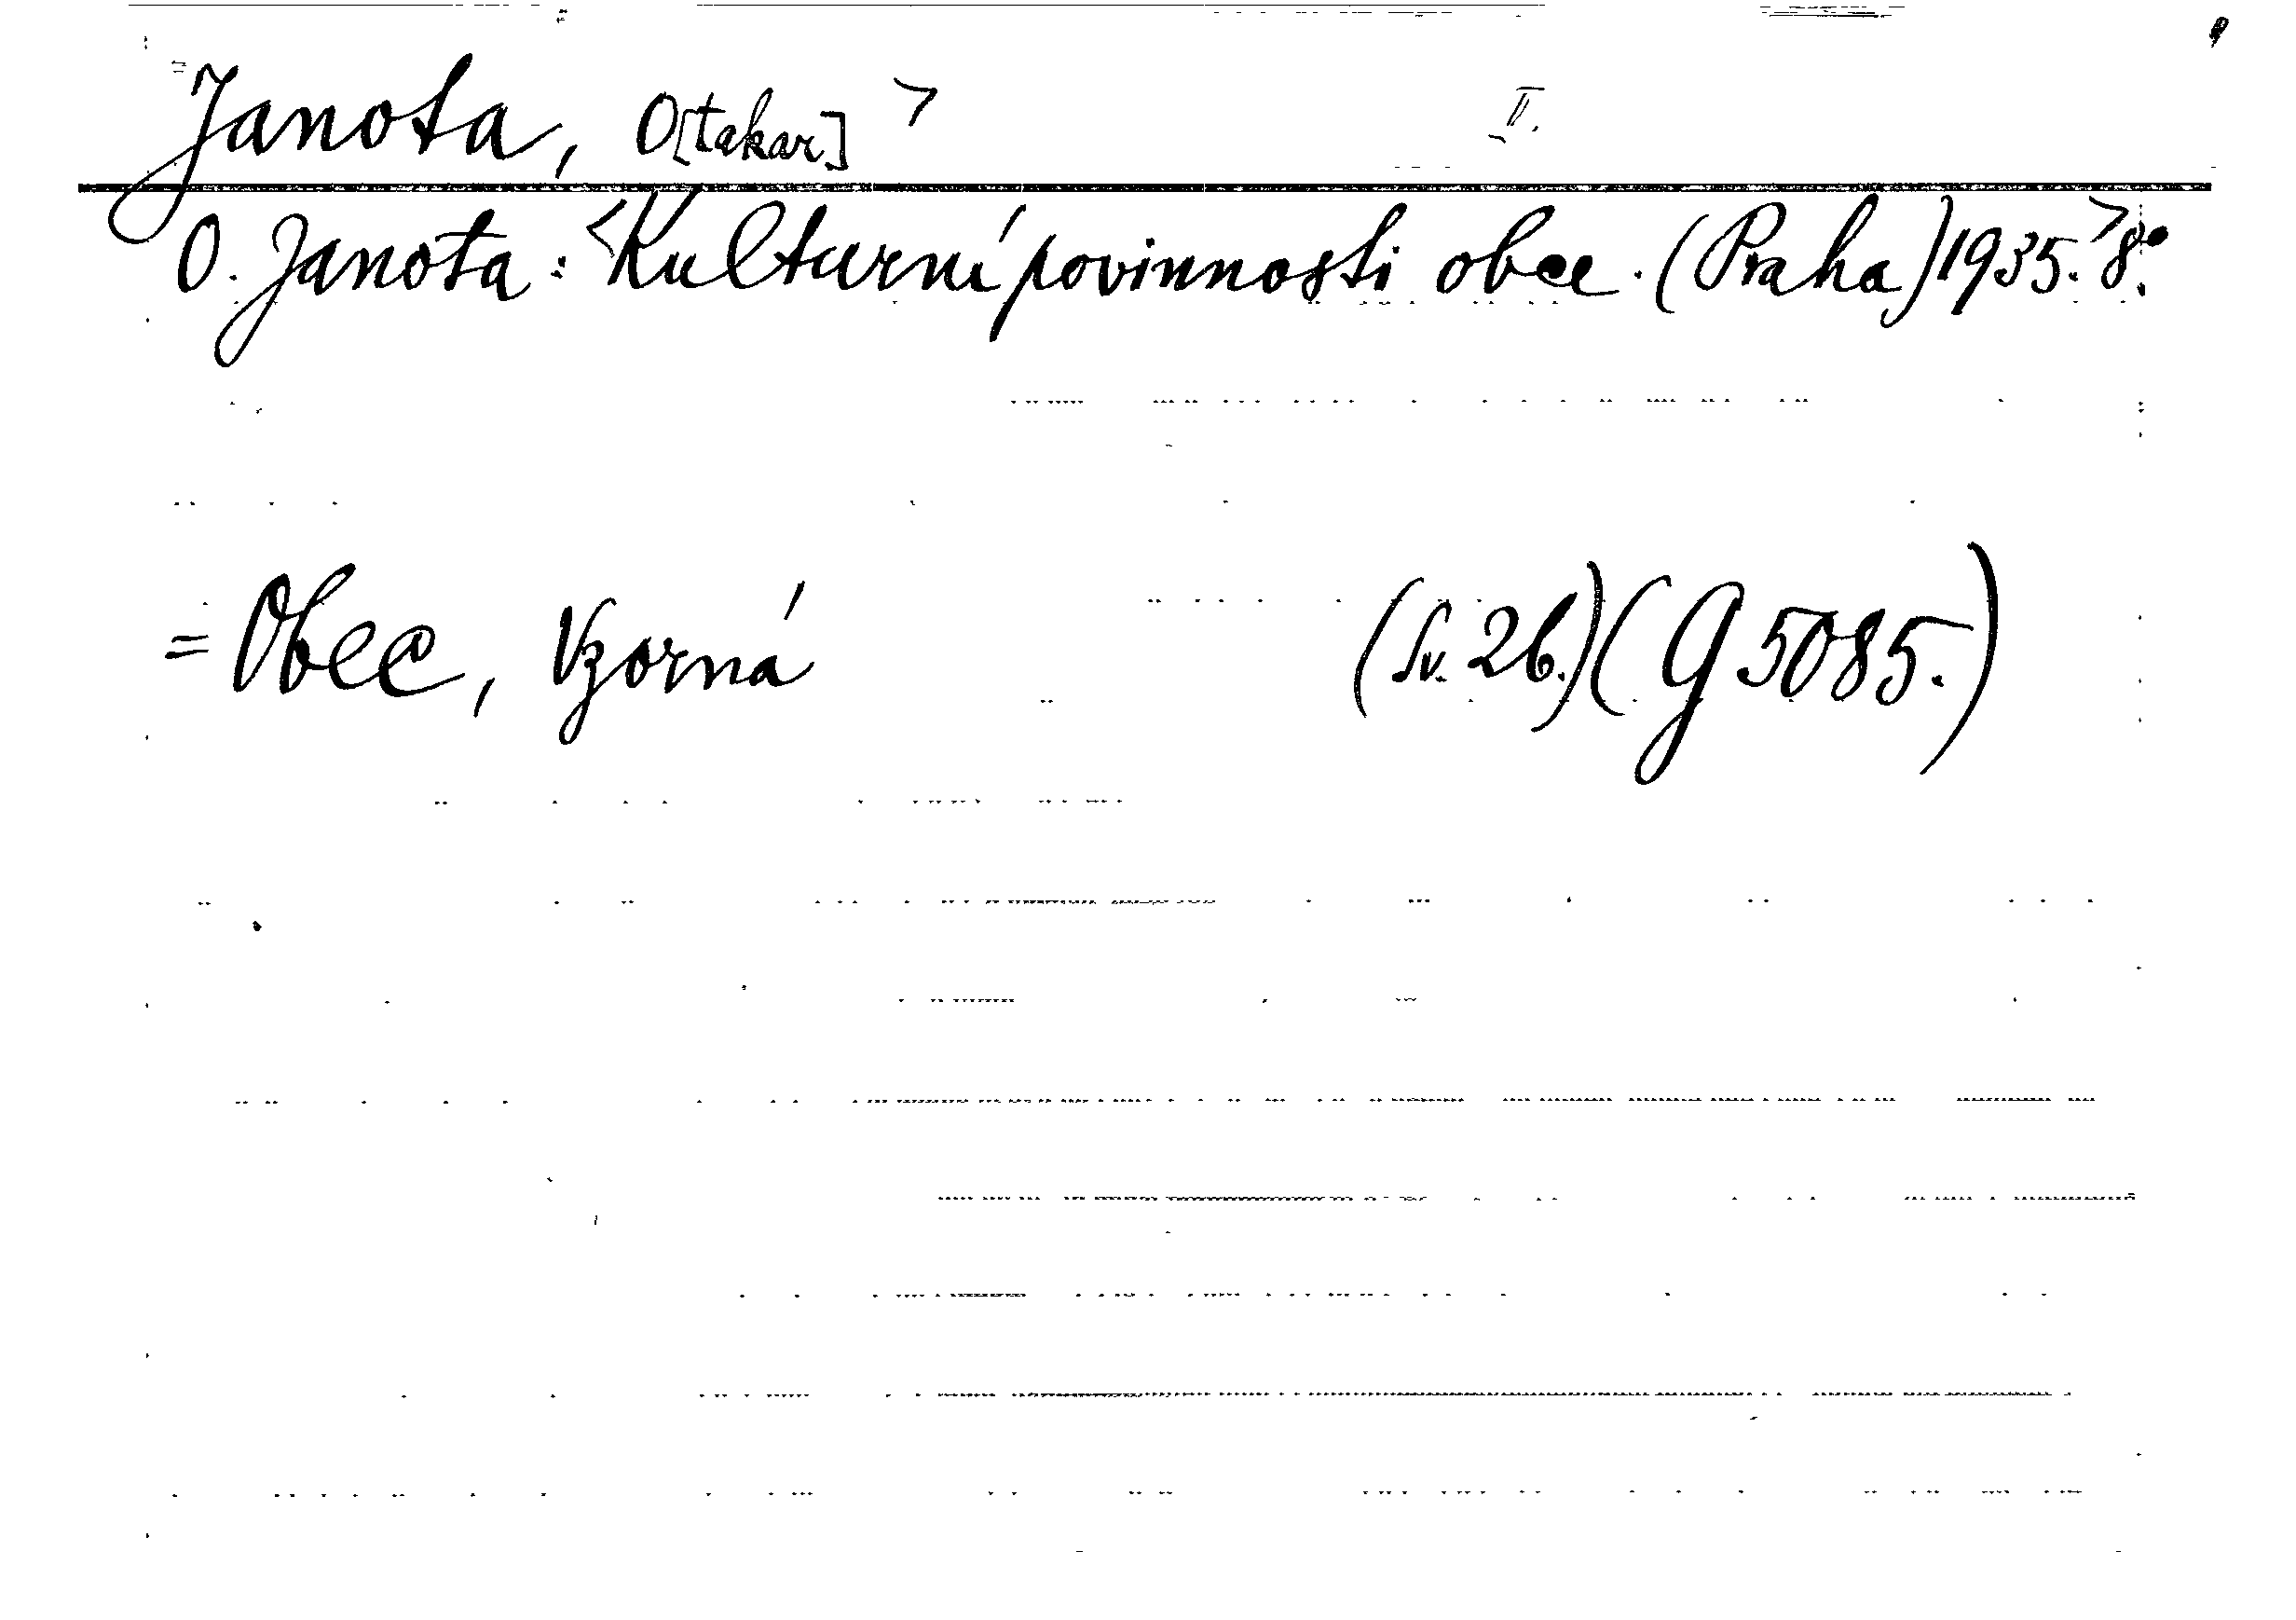 Janota, O[takar] > II.
O. Janota: <Kulturní povinnosti obce. (Praha) 1935.> 8°.
= Obec, Vzorná (Sv. 26.) (G 5085.)